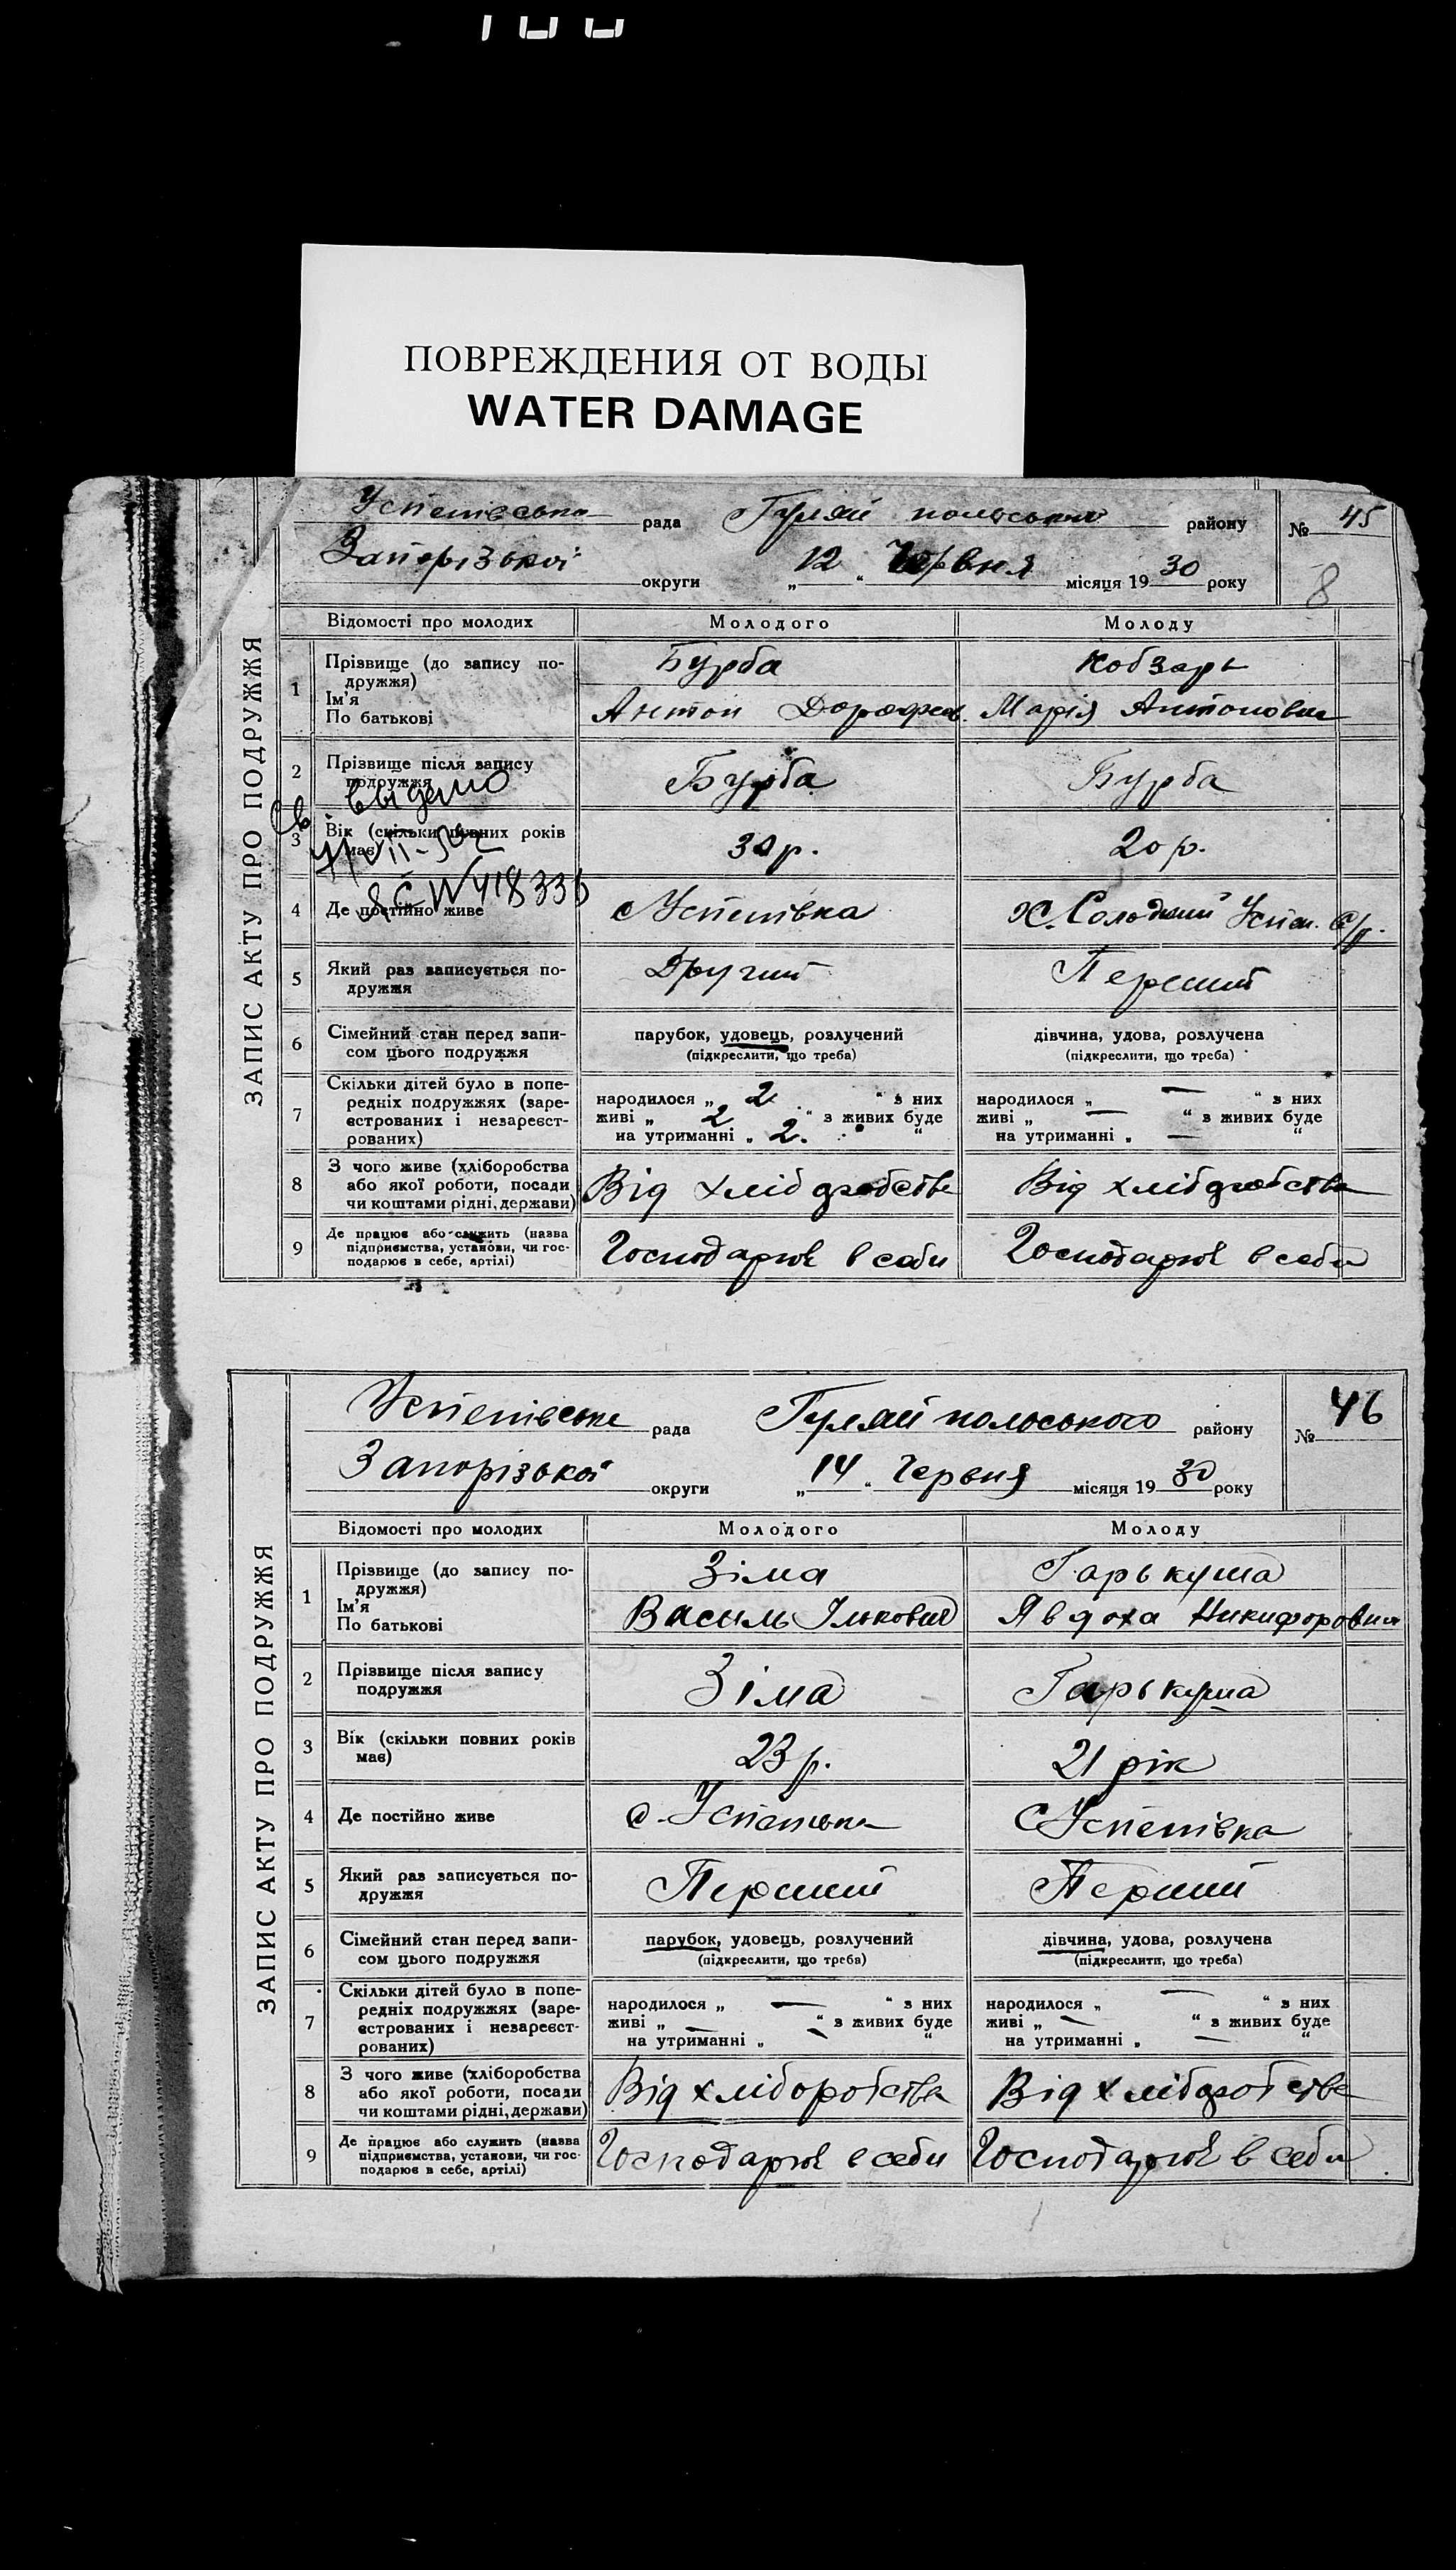 ПОВРЕЖДЕНИЯ ОТ ВОДЫ
WATER DAMAGE
ЗАПИС АКТУ ПРО ПОДРУЖЖЯ
Успенівська рада Гуляй польського району № 45
Запорізької округи „12“ Червня місяця 1930 року
8
Відомості про молодих Молодого Молоду
1 Прізвище (до запису по-
дружжя) Бурба Кобзарь
Ім'я
По батькові Антон Дорофеев. Марія Антоновна
2 Прізвище після запису
подружжя Бурба Бурба
Св. выдано
3 Вік (скільки повних років
має) 30 р. 20 р.
№ 418336
4 Де постійно живе с Успенівка Х. Солодкий Успен. с/р.
5 Який раз записується по-
дружжя Другий Перший
6 Сімейний стан перед запи-
сом цього подружжя парубок, удовець, розлучений дівчина, удова, розлучена
(підкреслити, що треба) (підкреслити, що треба)
7 Скільки дітей було в попе-
редніх подружжях (заре-
єстрованих і незареєст-
рованих)
народилося „ 2 “ з них народилося „ — “ з них
живі „ 2 “ з живих буде живі „ — “ з живих буде
на утриманні „ 2. “ на утриманні „ — “
8 З чого живе (хліборобства
або якої роботи, посади
чи коштами рідні, держави) Від хліборобства Від хліборобства
9 Де працює або служить (назва
підприємства, установи, чи гос-
подарює в себе, артілі) Господарює в себи Господарює в себи
ЗАПИС АКТУ ПРО ПОДРУЖЖЯ
Успенівська рада Гуляй польського району № 46
Запорізької округи „14“ Червня місяця 1930 року
Відомості про молодих Молодого Молоду
1 Прізвище (до запису по-
дружжя) Зіма Гарькуша
Ім'я
По батькові Василь Ількович Явдоха Никифоровна
2 Прізвище після запису
подружжя Зіма Гарькуша
3 Вік (скільки повних років
має) 23 р. 21 рік
4 Де постійно живе с. Успенівка с Успенівка
5 Який раз записується по-
дружжя Перший Перший
6 Сімейний стан перед запи-
сом цього подружжя парубок, удовець, розлучений дівчина, удова, розлучена
(підкреслити, що треба) (підкреслити, що треба)
7 Скільки дітей було в попе-
редніх подружжях (заре-
єстрованих і незареєст-
рованих)
народилося „ — “ з них народилося „ — “ з них
живі „ — “ з живих буде живі „ — “ з живих буде
на утриманні „ — “ на утриманні „ — “
8 З чого живе (хліборобства
або якої роботи, посади
чи коштами рідні, держави) Від хліборобства Від хліборобства
9 Де працює або служить (назва
підприємства, установи, чи гос-
подарює в себе, артілі) Господарює в себи Господарює в себи